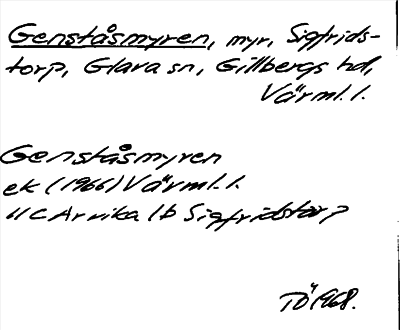 Genståsmyren, myr, Sigfrids-
torp, Glava sn, Gillbergs hd,
Värml. l.
Genståsmyren
ek (1966) Värml. l.
11C Arvika 1b Sigfridstorp
TÖ 1968.